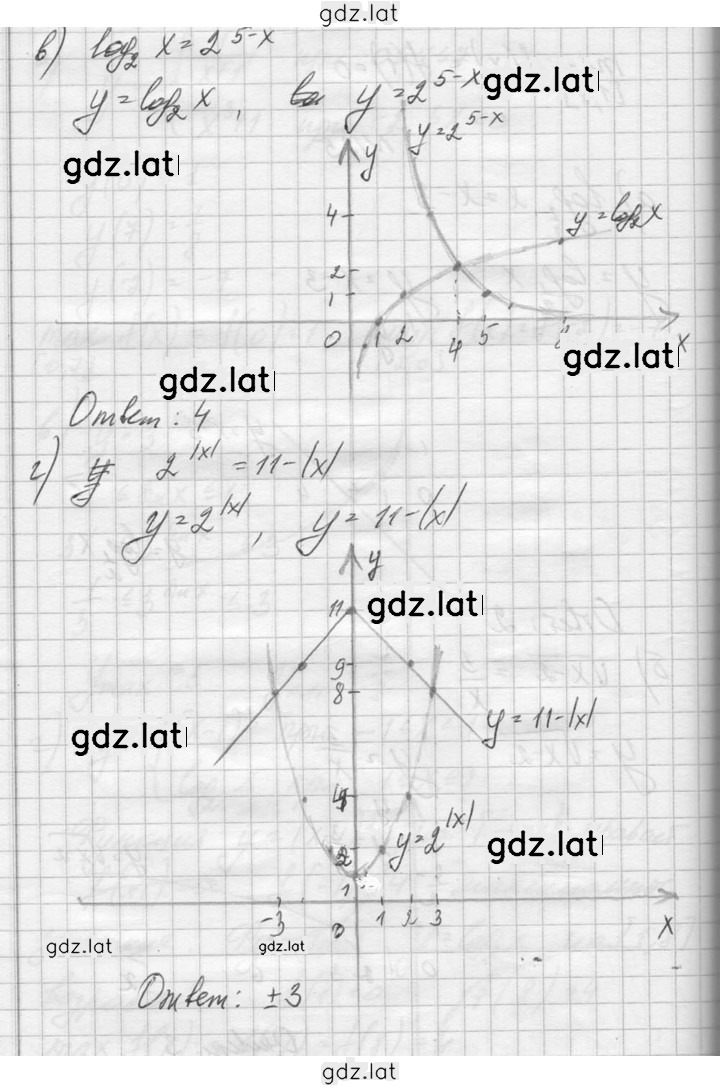 gdz.lat
в) log₂ x = 2^(5-x)
y = log₂ x, y = 2^(5-x)
gdz.lat
y = 2^(5-x)
gdz.lat
y
4
y = log₂ x
2
1
0 1 2 4 5 x
gdz.lat
gdz.lat
Ответ: 4
г) 2^|x| = 11-|x|
y = 2^|x|, y = 11-|x|
y
11
gdz.lat
9
8
y = 11-|x|
gdz.lat
4
y = 2^|x|
gdz.lat
2
1
-3 0 1 2 3 x
gdz.lat
gdz.lat
Ответ: ±3
gdz.lat